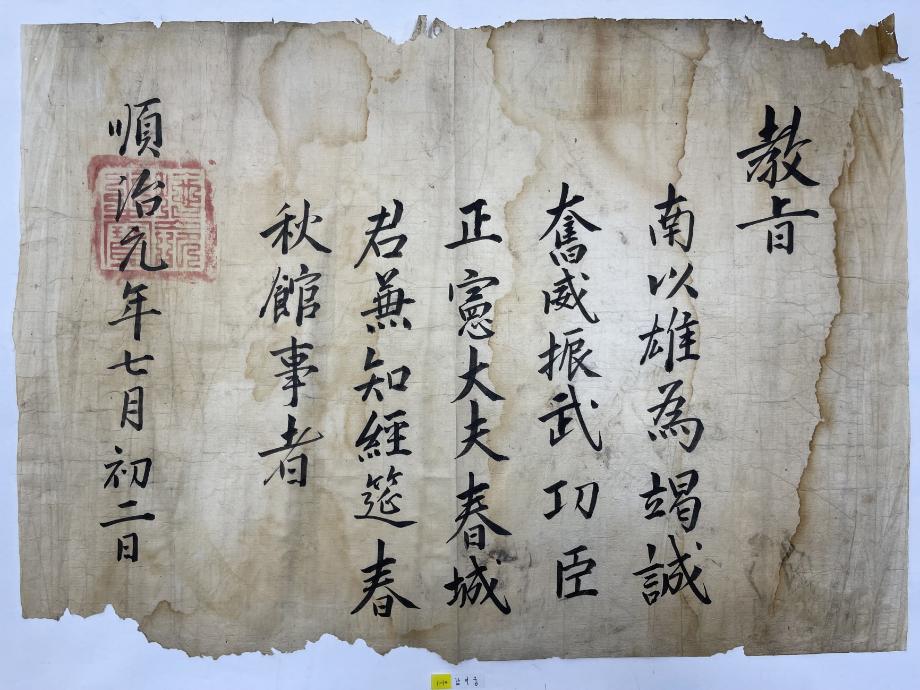 教旨
南以雄為竭誠
奮威振武功臣
正憲大夫春城
君兼知經筵春
秋館事者
順治元年七月初二日
남이웅